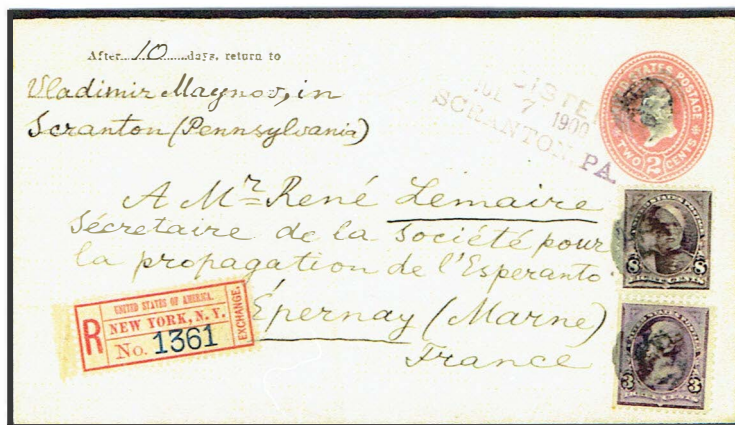 After 10 days, return to
Vladimir Maynov, in
Scranton (Pennsylvania)
REGISTERED
JUL 7 1900
SCRANTON, PA.
UNITED STATES POSTAGE
TWO 2 CENTS
A Mr René Lemaire
Sécretaire de la Société pour
la propagation de l'Esperanto
Épernay (Marne)
France
UNITED STATES OF AMERICA.
R NEW YORK, N. Y. EXCHANGE.
No. 1361
8 8
EIGHT CENTS
3 3